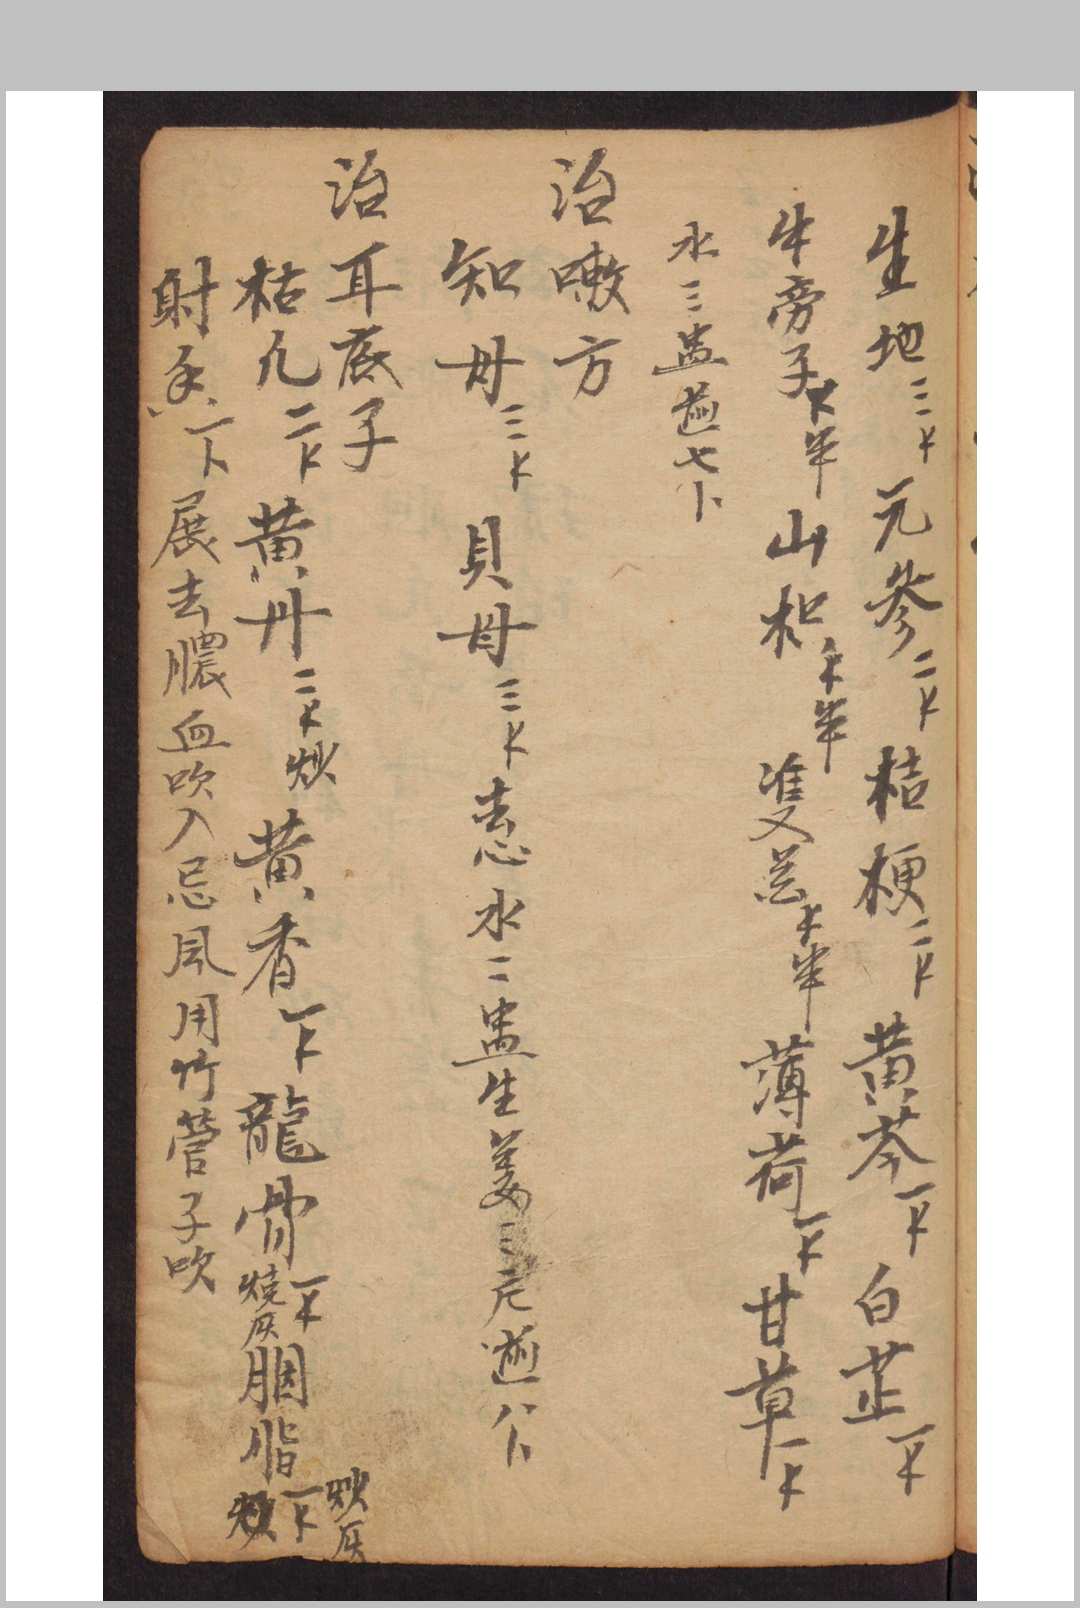 生地三卜元參二卜桔梗二卜黄芩一卜白芷一卜
牛旁子卜半山枳卜半隻芲卜半薄荷一卜甘草一卜
水三盅煎七卜
治嗽方
知母三卜貝母三卜去心水二盅生姜三片煎八卜
治耳底子
枯凢二卜黄丹二卜炒黄香一卜龍骨一卜燒灰胭脂一卜炒灰
射香一卜展去膿血吹入忌風用竹管子吹